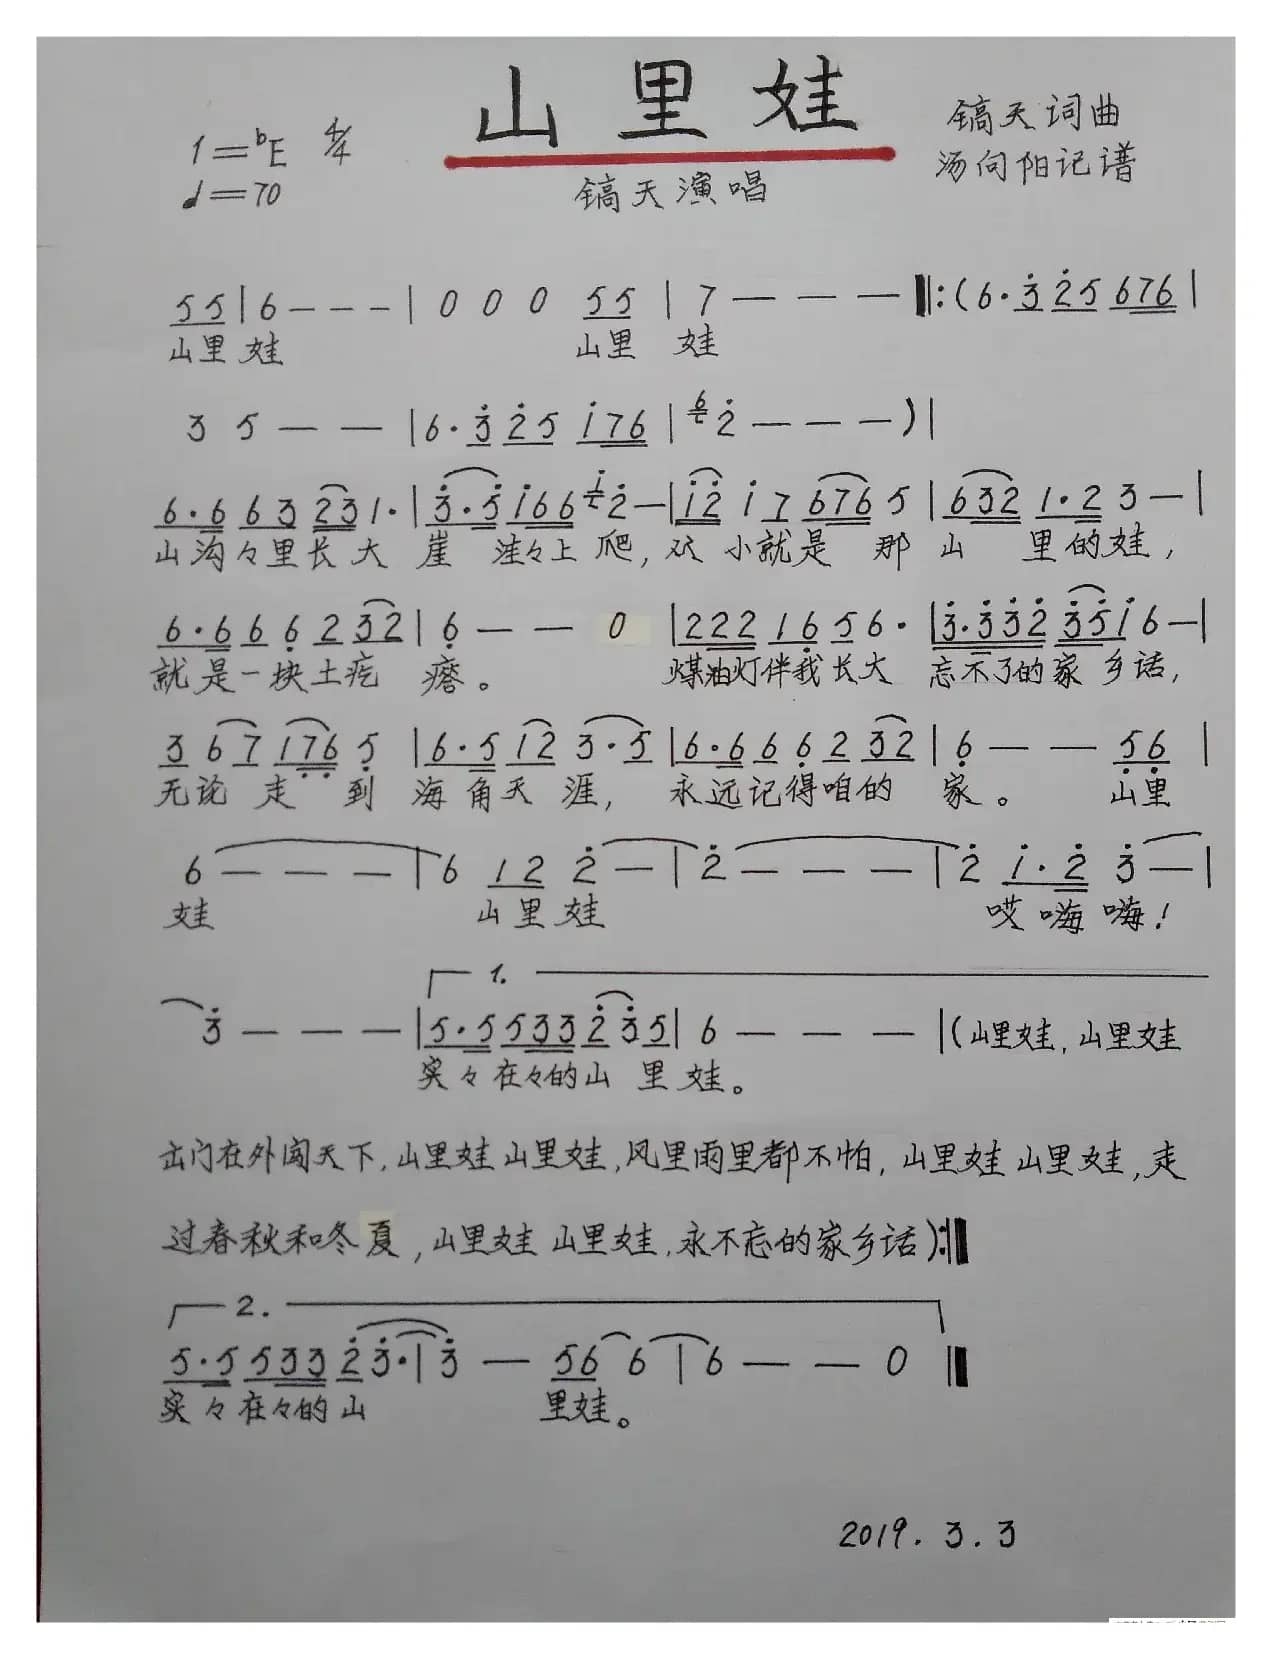 山里娃
1=♭E 4/4
♩=70
镐天词曲
汤向阳记谱
镐天演唱
55 | 6 - - - | 0 0 0 55 | 7 - - - ‖: (6·3̇ 2̇5 676 |
山里 娃 山里 娃
3 5 - - | 6·3̇ 2̇5 i76 | 6 2̇ - - - ) |
6·6 63 23 1· | 3̇·5̇ i66 i 2̇ - | i2̇ i 7 676 5 | 632 1·2 3 - |
山沟々里长大 崖 洼々上爬, 从 小就是 那 山 里的娃,
6·6 6 6̣ 2 32 | 6̣ - - 0 | 222 16̣ 5 6· | 3̇·3̇3̇2̇ 3̇5̇i 6 - |
就是一块土疙 瘩。 煤油灯伴我长大 忘不了的家乡话,
3 67 17̣6̣ 5̣ | 6·5 12 3·5 | 6·6 6 6̣ 2 32 | 6̣ - - 5̣6̣ |
无论 走 到 海角天涯, 永远记得咱的 家。 山里
6 - - - | 6 12 2̇ - | 2̇ - - - | 2̇ i·2̇ 3̇ - |
娃 山里娃 哎嗨嗨!
1.
3̇ - - - | 5·5 533 2̇ 3̇5 | 6 - - - | (山里娃, 山里娃
实々在々的山 里娃。
出门在外闯天下, 山里娃 山里娃, 风里雨里都不怕, 山里娃 山里娃, 走
过春秋和冬夏, 山里娃 山里娃, 永不忘的家乡话) :‖
2.
5·5 533 2̇ 3̇· | 3̇ - 56 6 | 6 - - 0 ‖
实々在々的山 里娃。
2019.3.3